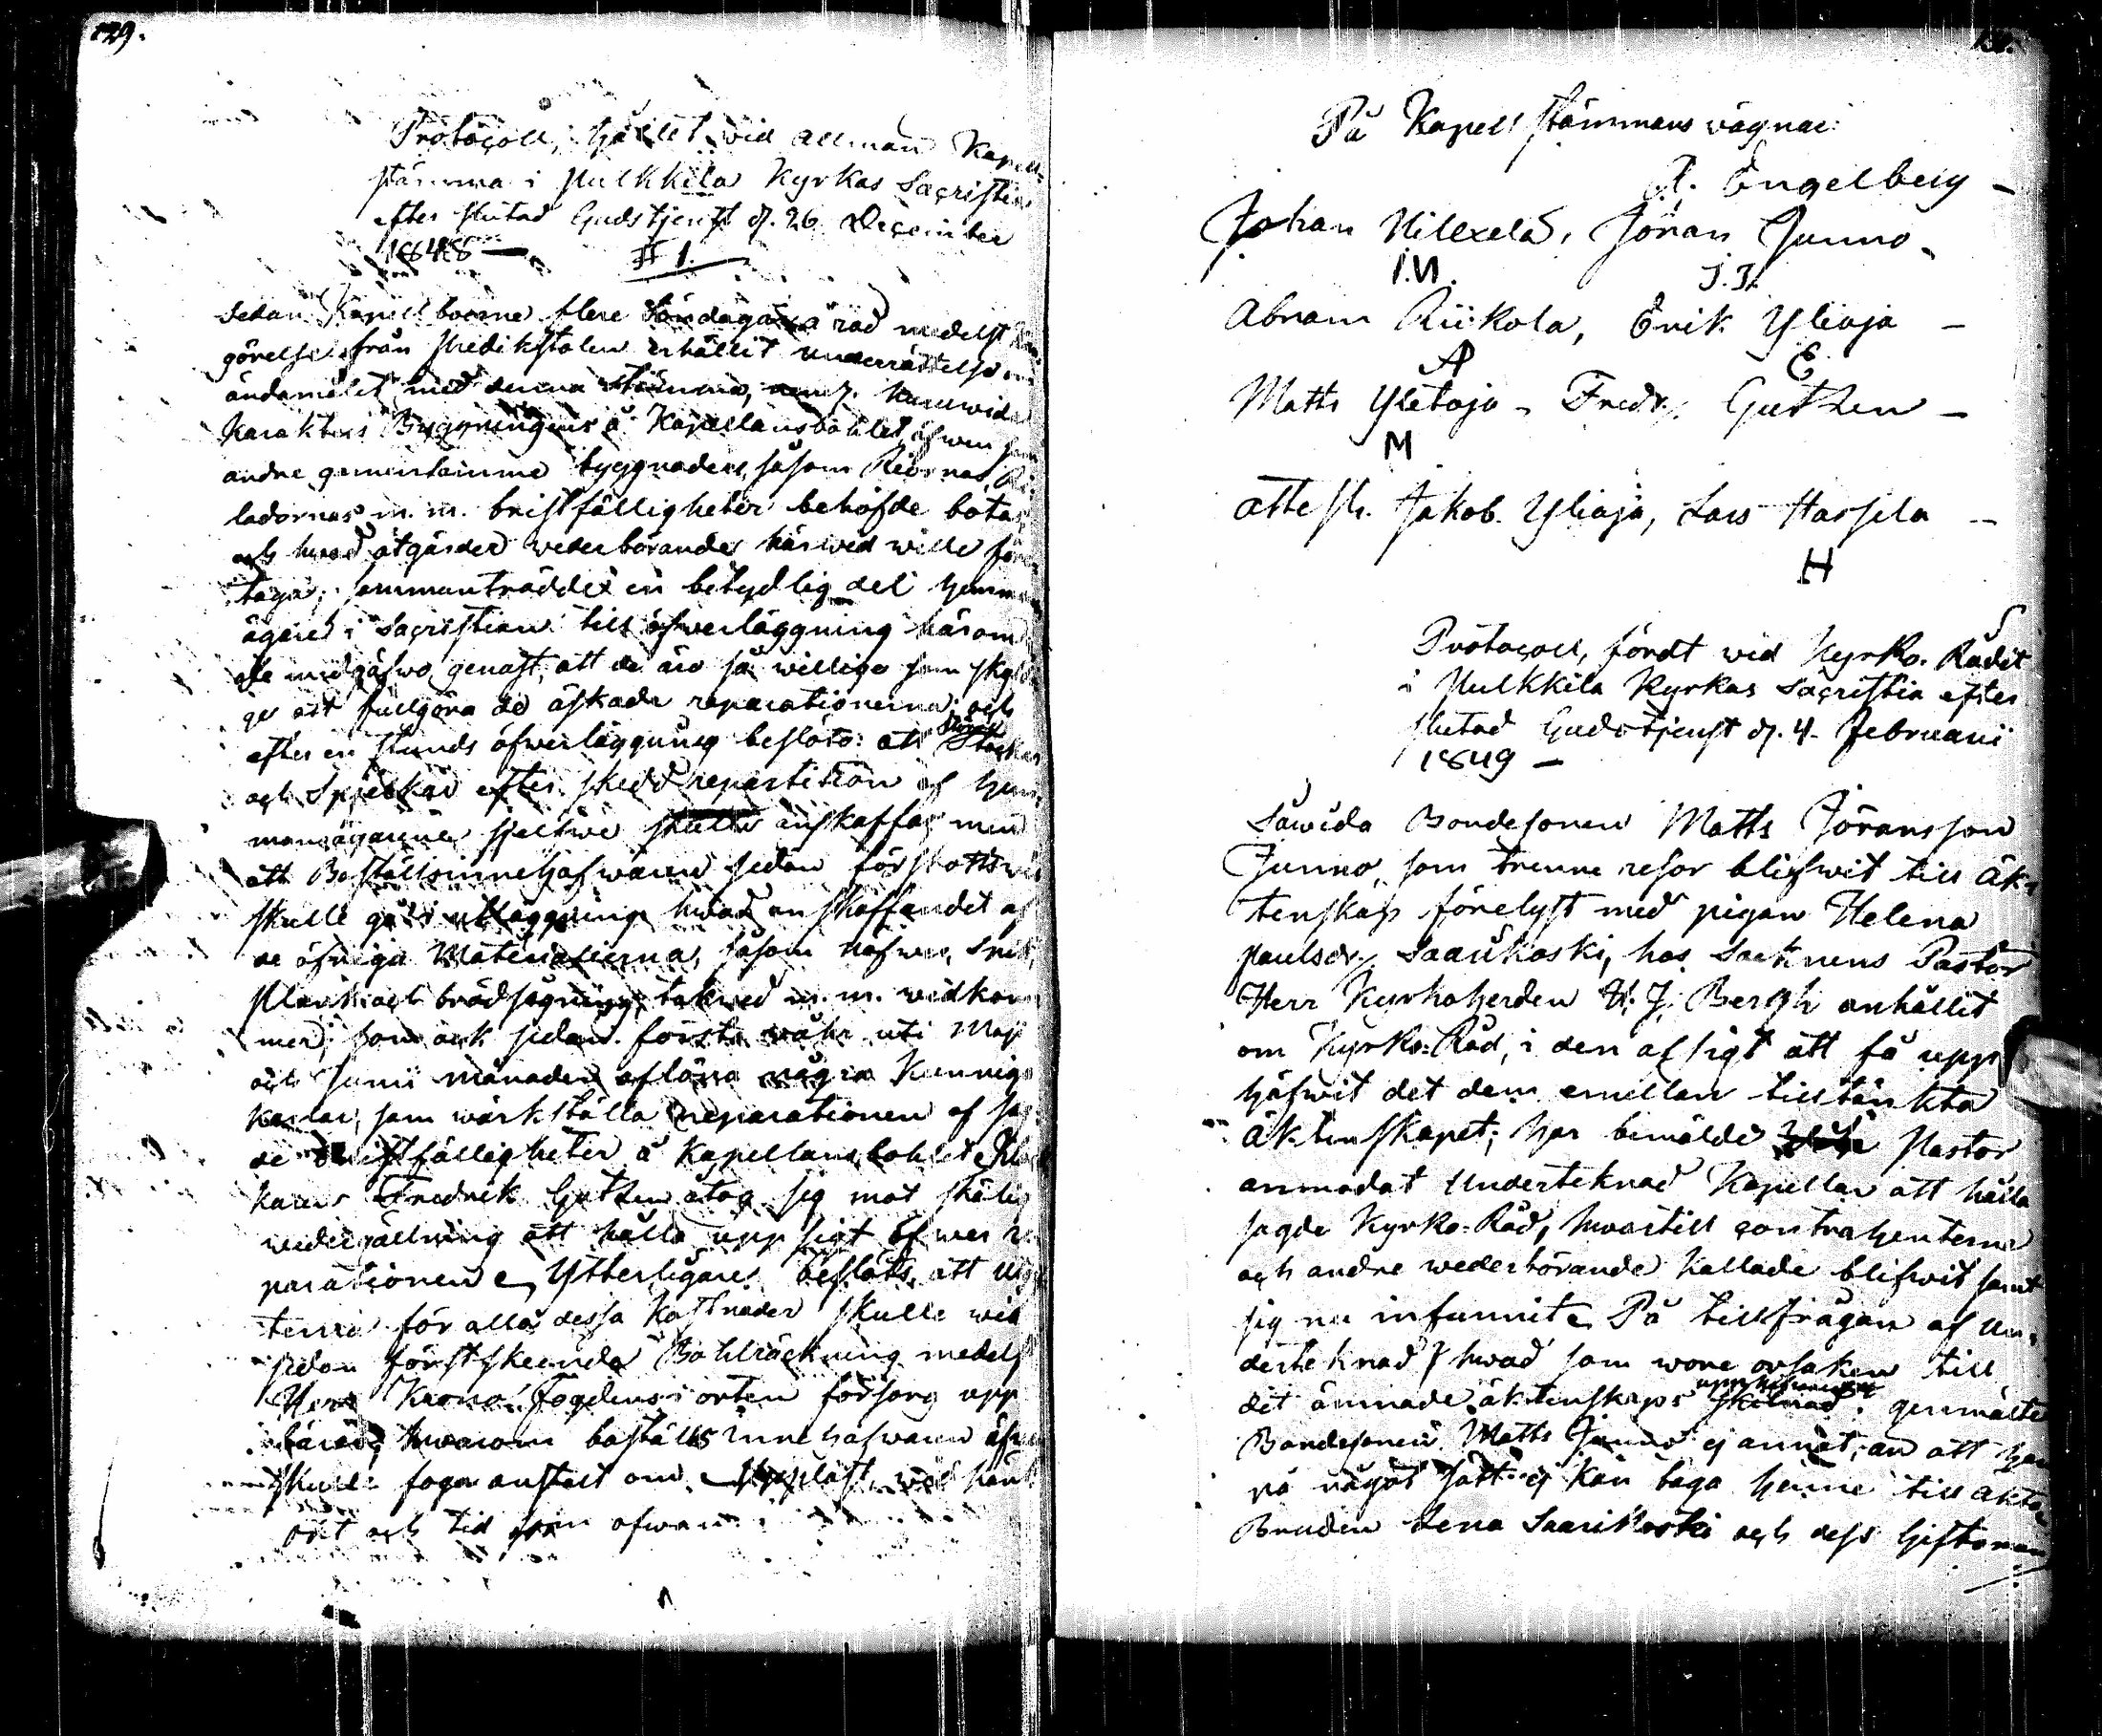 129.
Protocoll, hållet vid allmän Kapell-
stämma i Pulkkila Kyrkas Sacristia
efter slutad Gudstjenst d. 26 December
1848 —
§ 1.
Sedan Kapellboerne flere Söndagar å rad medelst
görelse från Predikstolen erhållit underrättelse om
ändamålet med denna stämma, neml. huruwida
Karakters Byggningens å Kapellansbohlet, äfwen som
andre gemensamme byggnaders, såsom Riornas,
ladornas m. m. bristfälligheter behöfde botas
och hwad åtgärder wederbörande härwid wille före
taga; sammanträdde en betydlig del hemmans
ägare i Sacristian till öfwerläggning härom
De medgåfwo genast, att de äro så willige som skyldi
ge att fullgöra de äskade reparationerna; och
efter en stunds öfwerläggning beslöts: att Stock
och Spjelkar efter skedd repartition af hem-
mansägarene sjelfwe skulle anskaffas men
att Boställsinnehafwaren sedan förskottswis
skulle gå i utläggning hwad anskaffandet af
de öfriga Materialierna, såsom näfwer,
Plank och brädsågning, takwed m. m. widkom
mer; som ock sedan första wåhr uti Maji
och Junii månader aflöna några kunniga
karlar, som wärkställa reparationen af sag
de bristfälligheter å Kapellansbohlet. Kloc
karen Fredrik Gutzen åtog sig mot skälig
wedergällning att hålla uppsigt öfwer re
parationen. Ytterligare beslöts, att
terne för alla dessa kostnader skulle wid
sedan först skeende Bohlräckning medelst
Herr Krono Fogdens i orten försorg upp
bäras, hwarom boställs innehafwaren äfwen
skulle foga anstalt om. Uppläst, wid händ
ort och tid som ofwan
På Kapellstämmans vägnar:
A. Engelberg —
Johan Nilexelä, Jöran Junno.
I.N. J.J.
Abram Riikola, Erik Yliaja —
A E
Matts Yletojo — Fredr. Gutzen —
M
attest. Jakob Yliaja, Lars Harjula —
H
Protocoll, fördt wid Kyrko-Rådet
i Pulkkila Kyrkas Sacristia efter
slutad Gudstjenst d. 4. Februari
1849 —
Såwida Bondesonen Matts Jöransson
Junno, som trenne resor blifwit till äk-
tenskap förelyst med pigan Helena
Paulsdr. Saarikoski, hos Socknens Pastor
Herr Kyrkoherden H. J. Bergh anhållit
om Kyrko-Råd, i den afsigt att få upp
häfwit det dem emellan tilltänkta
äktenskapet; har bemälde Pastor
anmodat Undertecknad Kapellan att hålla
sagde Kyrko-Råd, hwartill contrahenterne
och andre wederbörande kallade blifwit samt
sig nu infunnit. På tillfrågan af Un-
derteknad hwad som wore orsaken till
det ämnade äktenskaps upphäfwande, genmälte
Bondesonen Matts Junno ej annat, än att han
på något sätt ej kan taga henne till äkta,
Bruden Lena Saarikoski och dess Giftoman